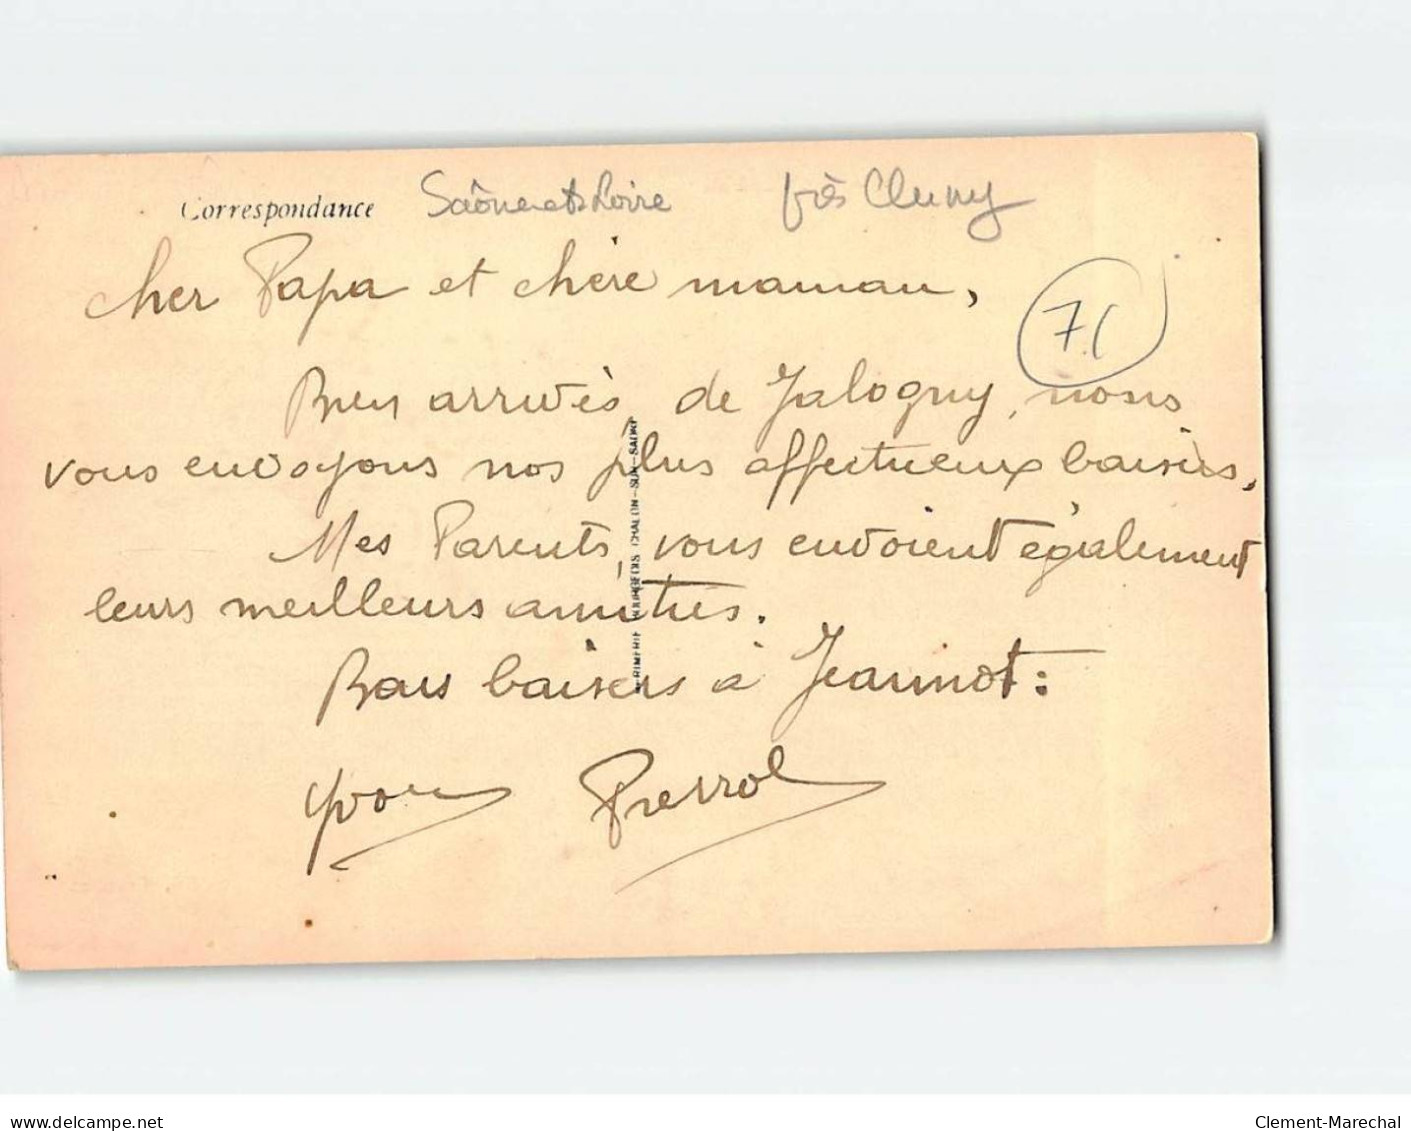 Correspondance Saône et Loire près Cluny
cher Papa et chère maman,
71
Bien arrivés de Jalogny, nous
vous envoyons nos plus affectueux baisers.
Mes Parents, vous envoient également
leurs meilleurs amitiés.
Bons baisers à Jeannot:
Yvonne Perrol
IMPRIMERIE BOURGEOIS CHALON-SUR-SAONE
www.delcampe.net
Clement-Marechal